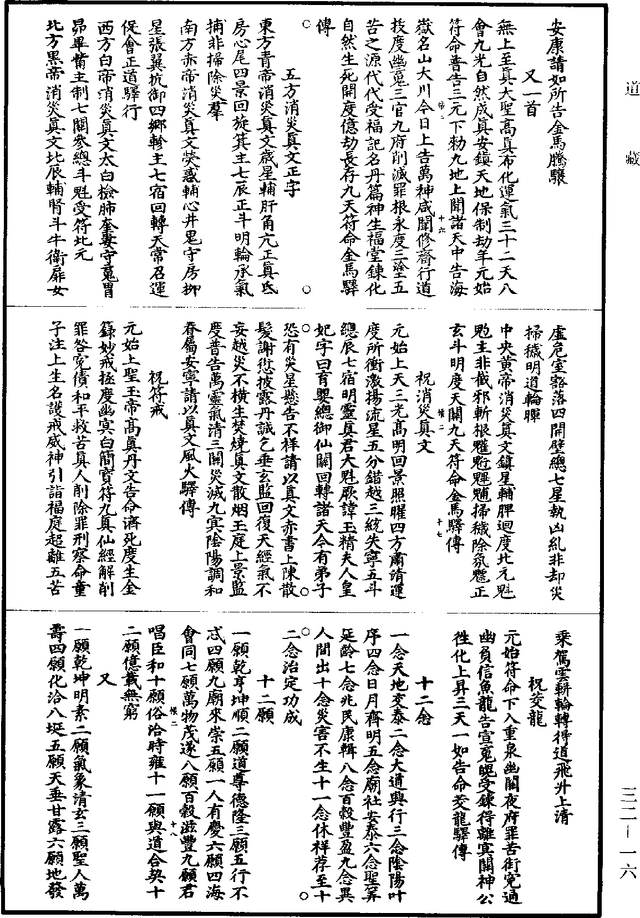 道藏
安康請如所告金馬騰驤
又一首
無上至真大聖高真布化運氣三十二天八
會九光自然成真安鎮天地保制劫年元始
符命普告三元下勑九地上聞諸天中告海
嶽名山大川今日上告萬神咸聞修齋行道
拔度幽䰟三官九府削滅罪根永度三塗五
苦之源代代受福記名丹篇神生福堂鍊化
自然生死開度億劫長存九天符命金馬驛
傳
五方消災真文正字
東方青帝消災真文歲星輔肝角亢正真氐
房心尾四景回旋箕主七辰正斗明輪承氣
捕非掃除災羣
南方赤帝消災真文熒惑輔心井鬼守房柳
星張翼抗御四鄉軫主七宿回轉天常召運
促會正道驛行
西方白帝消災真文太白檢肺奎婁守䰟胃
昴畢觜主制七關參總斗魁受符北元
北方黑帝消災真文北辰輔腎斗牛衛扉女
虛危室豁落四開壁總七星執凶糺非却災
掃穢明道輪暉
中央黃帝消災真文鎮星輔脾迴度北元魁
䰢主非截邪斬根䰫魓䰯䰱掃穢除氛魒正
玄斗明度天關九天符命金馬驛傳
祝消災真文
元始上天三光高明回景照曜四方肅清運
度所衝激揚流星五分錯越三統失寧五斗
總辰七宿明靈真君大魁厥諱玉精夫人皇
妃字曰育嬰總御仙關回轉諸天今有弟子
恐有災星懸告不祥請以真文赤書上陳散
髮謝愆披露丹誠乞垂玄監回復天經氣不
妄越災不橫生焚燒真文散烟玉庭上景監
度普告萬靈氣清三關災滅九冥陰陽調和
眷屬安寧請以真文風火驛傳
祝符戒
元始上聖玉帝高真丹文告命濟死度生金
籙妙戒拯度幽冥白簡寶符九真仙經解削
罪咎冤債和平救苦真人削除罪刑察命童
子注上生名護戒威神引詣福庭超離五苦
乘駕雲輧輪轉得道飛升上清
祝茭龍
元始符命下入重泉幽關夜府罪苦銜冤通
幽負信魚龍告宣䰟魄受鍊得離冥關神公
徃化上昇三天一如告命茭龍驛傳
十二念
一念天地交泰二念大道興行三念陰陽叶
序四念日月齊明五念廟社安泰六念聖筭
延齡七念兆民康輯八念百穀豐盈九念異
人間出十念災害不生十一念休祥荐至十
二念治定功成
十二願
一願乾亨坤順二願道尊德隆三願五行不
忒四願九廟來崇五願一人有慶六願四海
會同七願萬物茂遂八願百穀滋豐九願君
唱臣和十願俗洽時雍十一願與道合契十
二願億載無窮
又
一願乾坤明素二願氣象清玄三願聖人萬
壽四願化洽八埏五願天垂甘露六願地發
三二－一六